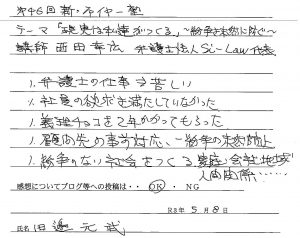 第46回新・ネイヤー塾
テーマ 「現実は私達がつくる」 ～紛争を未然に防ぐ～
講師 西田幸広 弁護士法人Si-Law代表
1. 弁護士の仕事は苦しい
1. 社員の欲求を満たしていなかった
1. 義理チョコを2年かかってもらった
1. 顧問先の事前対応、～紛争の未然防止
1. 紛争のない社会をつくる 家庭、会社、地域
人間関係……
感想についてブログ等への投稿は・・OK・NG
R8年 5月8日
氏名 田邊元武